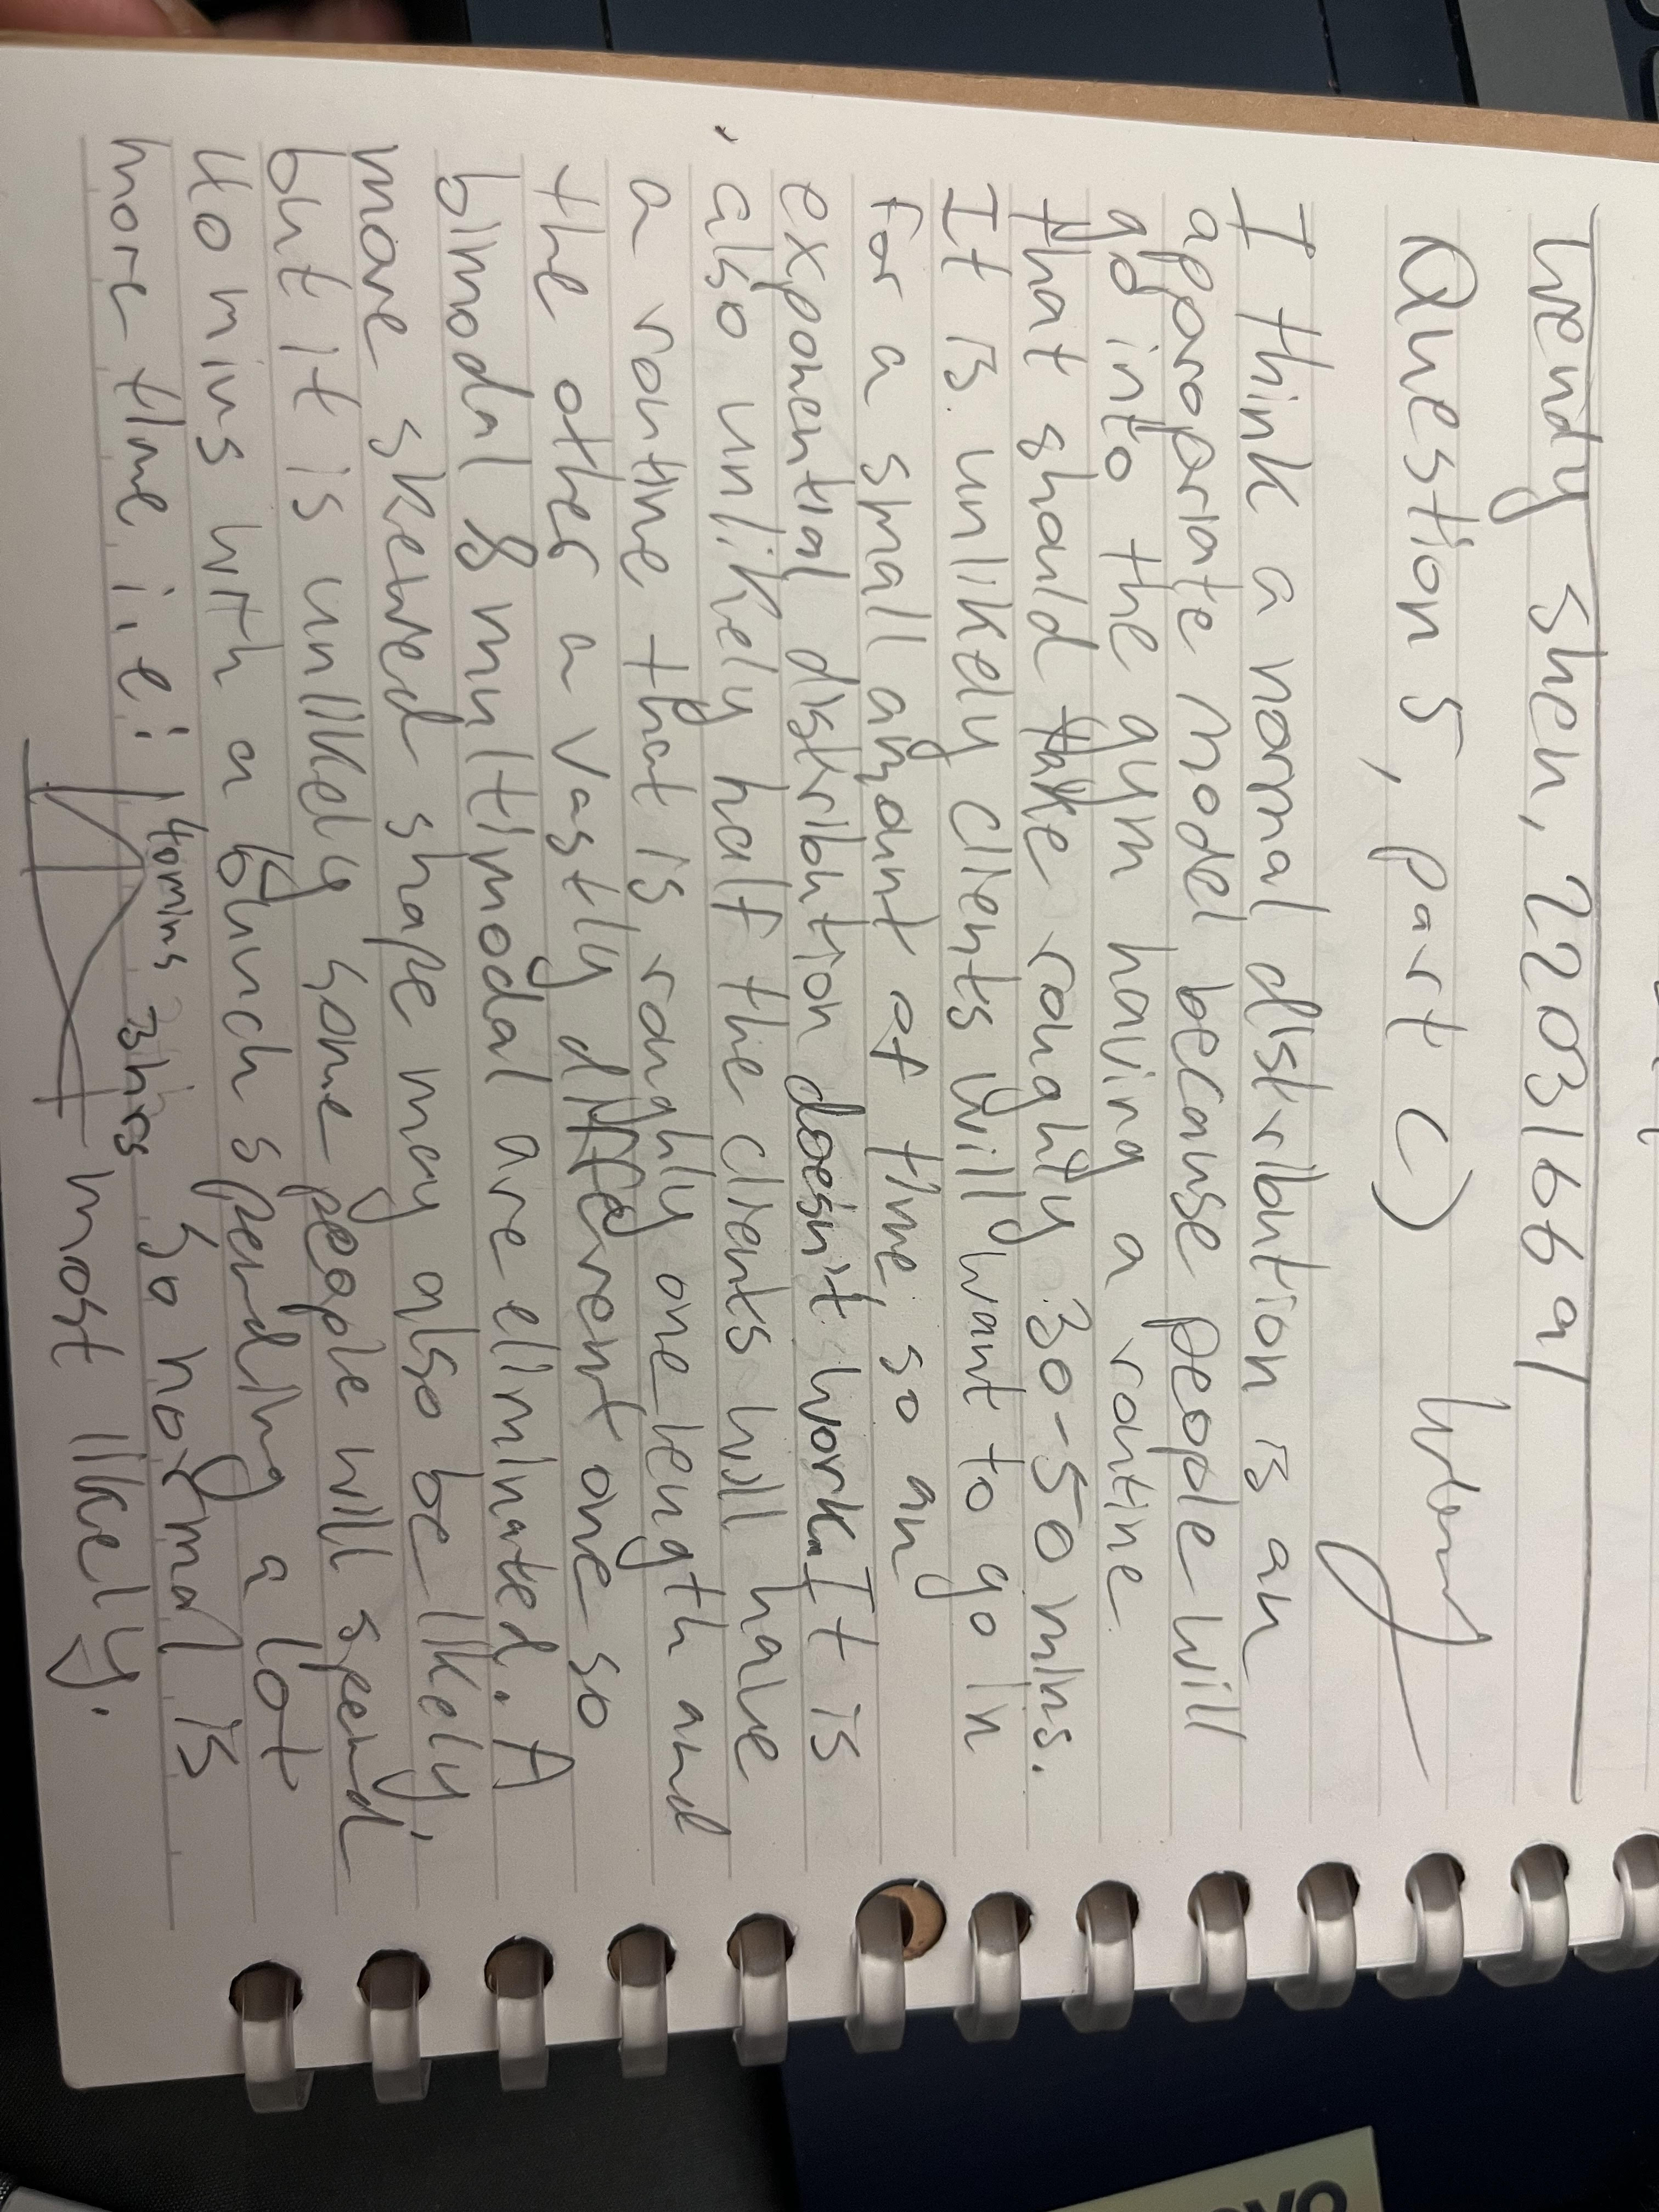 Wendy Shen, 220316691
Question 5, part c)
Wendy
I think a normal distribution is an
appropriate model because people will
go into the gym having a routine
that should take roughly 30-50 mins.
It is unlikely clients will want to go in
for a small amount of time, so an
exponential distribution doesn't work. It is
also unlikely half the clients will have
a routine that is roughly one length and
the other a vastly different one so
bimodal & multimodal are eliminated. A
more skewed shape may also be likely,
but it is unlikely some people will spend
40 mins with a bunch spending a lot
more time i.e: 40mins 3hrs So normal is
most likely.